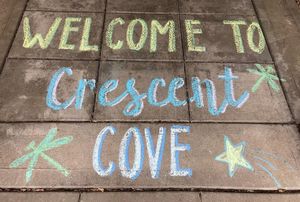 WELCOME TO
Crescent
COVE